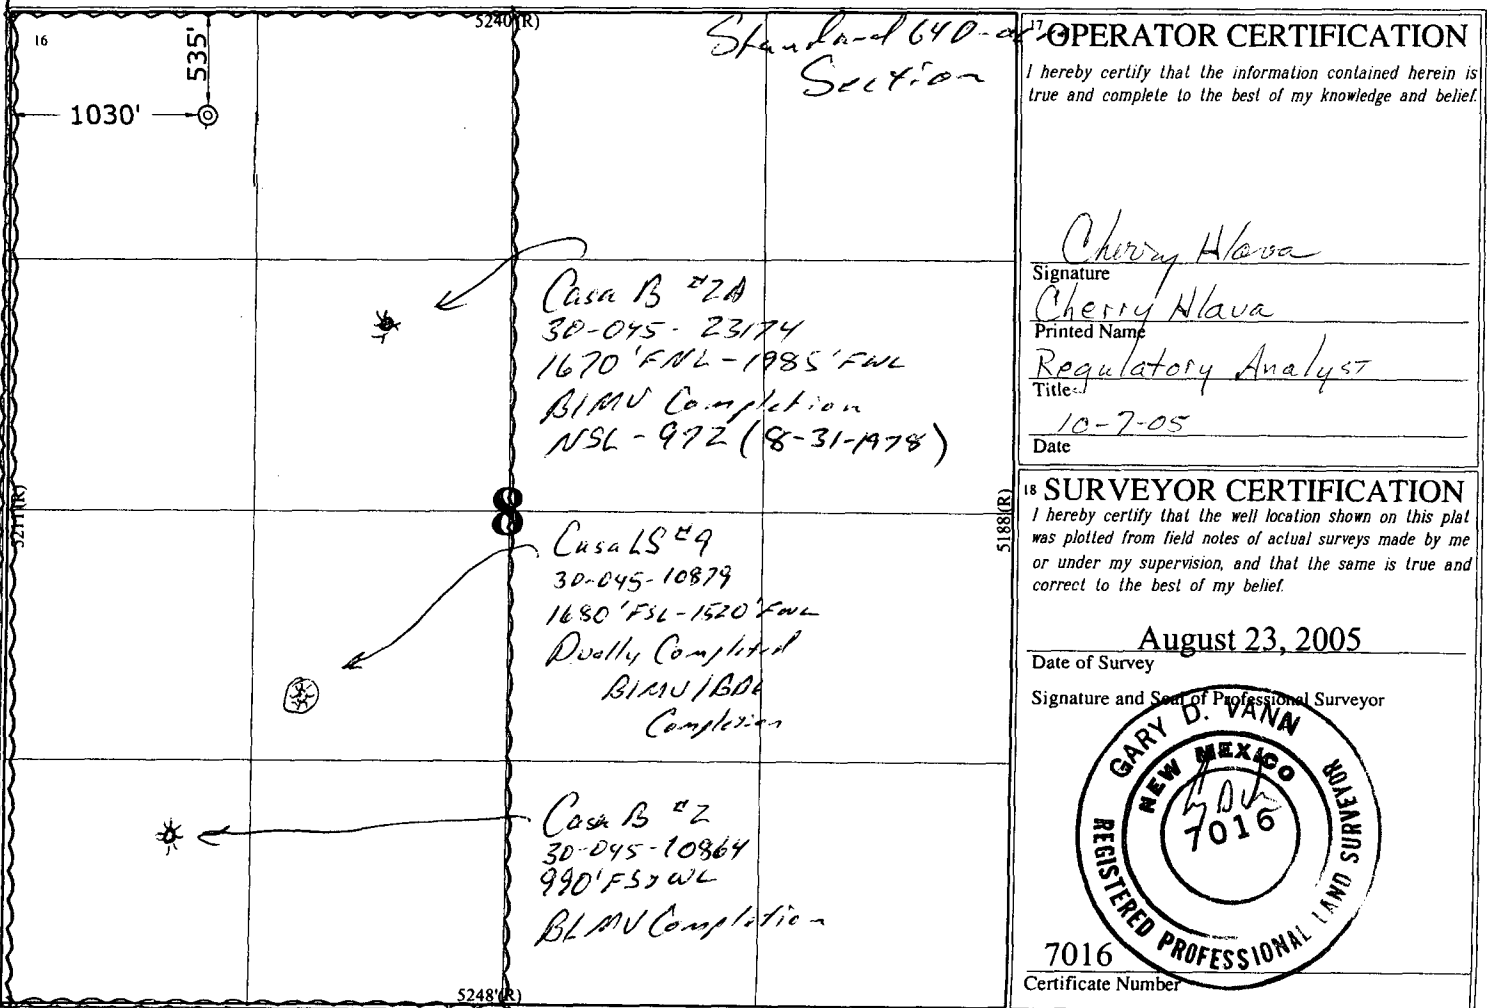 16
5240'(R)
535'
1030'
Standard 640-ac
Section
Casa B #2A
30-045-23174
1670'FNL-1985'FWL
BlMV Completion
NSL-972 (8-31-1978)
5211'(R)
8
5188'(R)
Casa LS #9
30-045-10879
1680'FSL-1520'FWL
Dually Completed
BlMV/
Completion
Casa B #2
30-045-10864
990'FS&WL
BLMV Completion
5248'(R)
17 OPERATOR CERTIFICATION
I hereby certify that the information contained herein is
true and complete to the best of my knowledge and belief.
Cherry Hlava
Signature
Cherry Hlava
Printed Name
Regulatory Analyst
Title
10-7-05
Date
18 SURVEYOR CERTIFICATION
I hereby certify that the well location shown on this plat
was plotted from field notes of actual surveys made by me
or under my supervision, and that the same is true and
correct to the best of my belief.
August 23, 2005
Date of Survey
Signature and Seal of Professional Surveyor
GARY D. VANN
NEW MEXICO
7016
REGISTERED PROFESSIONAL LAND SURVEYOR
7016
Certificate Number